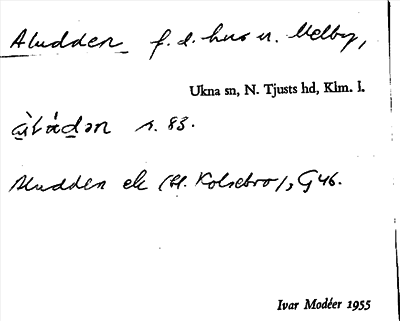 Aludden f. d. hus u. Melby,
Ukna sn, N. Tjusts hd, Klm. l.
s. 83.
Aludden ek (H. Kolsebro), G46.
Ivar Modéer 1955